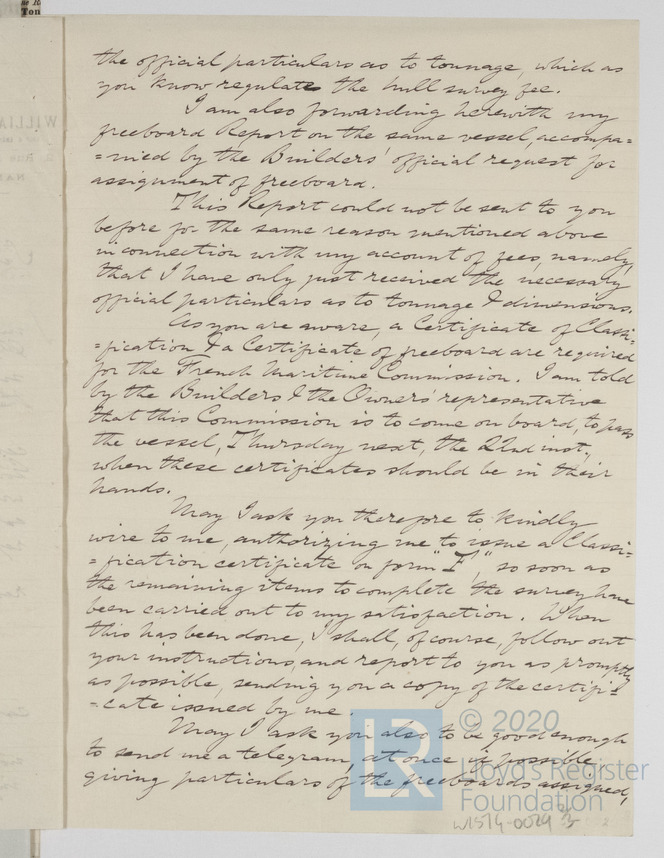 the official particulars as to tonnage, which as
you know regulates the hull survey fee.
I am also forwarding herewith my
freeboard Report on the same vessel, accompa=
=nied by the Builders' official request for
assignment of freeboard.
This Report could not be sent to you
before for the same reason mentioned above
in connection with my account of fees, namely,
that I have only just received the necessary
official particulars as to tonnage & dimensions.
As you are aware, a Certificate of Classi=
=fication & a Certificate of freeboard are required
for the French Maritime Commission. I am told
by the Builders & the Owners' representative
that this Commission is to come on board, to pass
the vessel, Thursday next, the 22nd inst.,
when these certificates should be in their
hands.
May I ask you therefore to kindly
wire to me, authorizing me to issue a Classi=
=fication certificate on form "I", so soon as
the remaining items to complete the survey have
been carried out to my satisfaction. When
this has been done, I shall, of course, follow out
your instructions, and report to you as promptly
as possible, sending you a copy of the certifi=
=cate issued by me.
May I ask you also to be good enough
to send me a telegram, at once if possible,
giving particulars of the freeboards assigned,
LR © 2020
Lloyd's Register
Foundation
W1574-0029
WILLIA
Ton